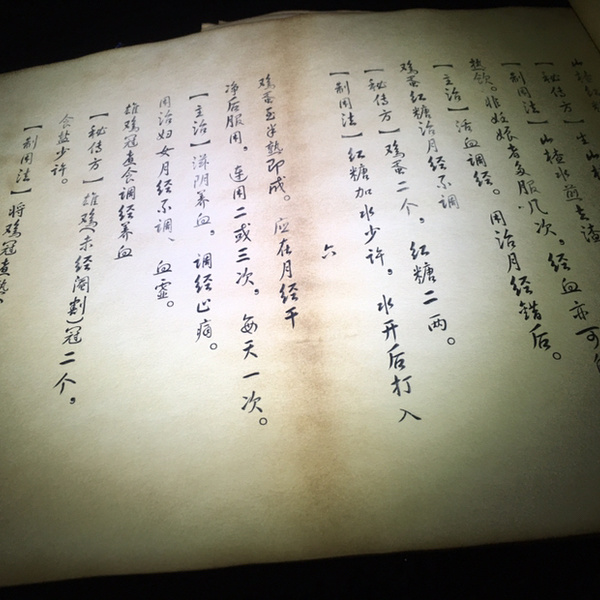 山楂红
【秘传方】生山楂
【制用法】山楂水煎去渣
热饮。非妊娠者多服几次,经血亦可自
【主治】活血调经。用治月经错后。
鸡蛋红糖治月经不调
【秘传方】鸡蛋二个,红糖二两。
【制用法】红糖加水少许,水开后打入
六
鸡蛋至半熟即成。应在月经干
净后服用,连用二或三次,每天一次。
【主治】滋阴养血,调经止痛。
用治妇女月经不调、血虚。
雄鸡冠煮食调经养血
【秘传方】雄鸡(未经阉割)冠二个,
食盐少许。
【制用法】将鸡冠煮熟,